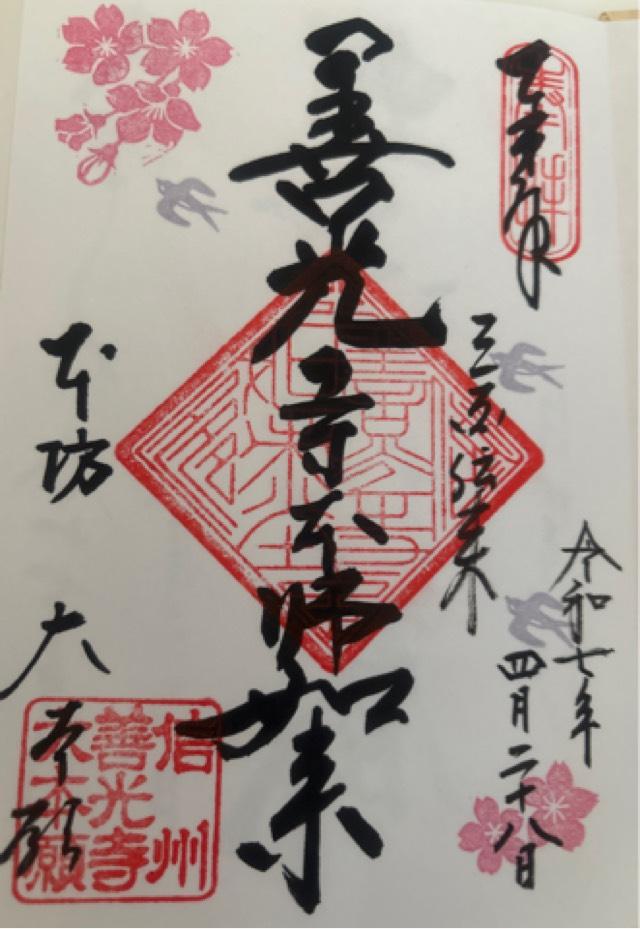 令和七年
四月二十八日
三国伝来
善光寺本師如来
本坊 大本願
信州
善光寺
大本願